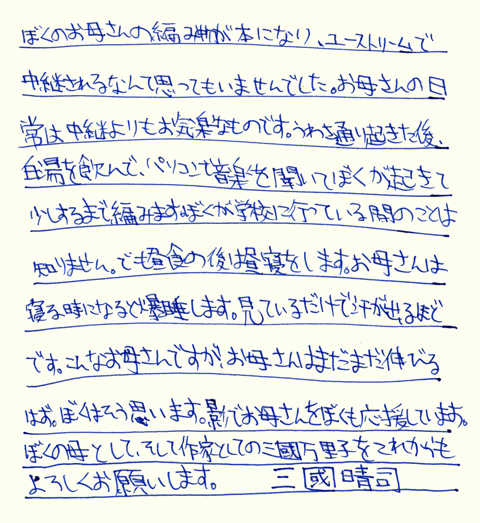 ぼくのお母さんの編み物が本になり、ユーストリームで
中継されるなんて思ってもいませんでした。お母さんの日
常は中継よりもお気楽なものです。うわさ通り起きた後、
白湯を飲んで、パソコンで音楽を聞いてぼくが起きて
少しするまで編みます。ぼくが学校に行っている間のことは
知りません。でも昼食の後は昼寝をします。お母さんは
寝る時になると爆睡します。見ているだけで汗が出るほど
です。こんなお母さんですが、お母さんはまだまだ伸びる
はず。ぼくはそう思います。影でお母さんをぼくも応援しています。
ぼくの母として、そして作家としての三國万里子をこれからも
よろしくお願いします。 三國晴司